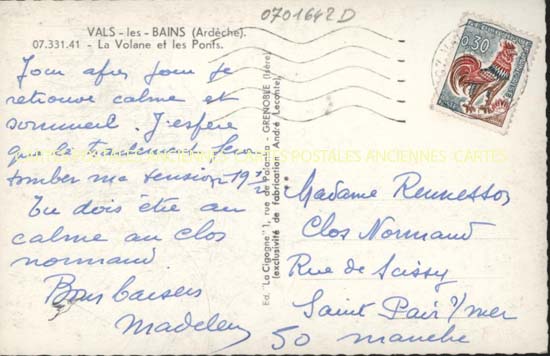 0701642D
VALS - les - BAINS (Ardèche).
07.331.41 - La Volane et les Ponts.
Jour après jour je
retrouve calme et
sommeil. J'espère
que le traitement fera
tomber ma tension 19
Tu dois être au
calme au clos
normand
Bons baisers
Madelen
0,30
Ed. "La Cigogne", 1, rue de Palanka - GRENOBLE (Isère)
(exclusivité de fabrication André Lecomte)
CARTES POSTALES ANCIENNES CARTES
Madame Rennesson
Clos Normand
Rue de Scissy
Saint Pair s/mer
50 manche